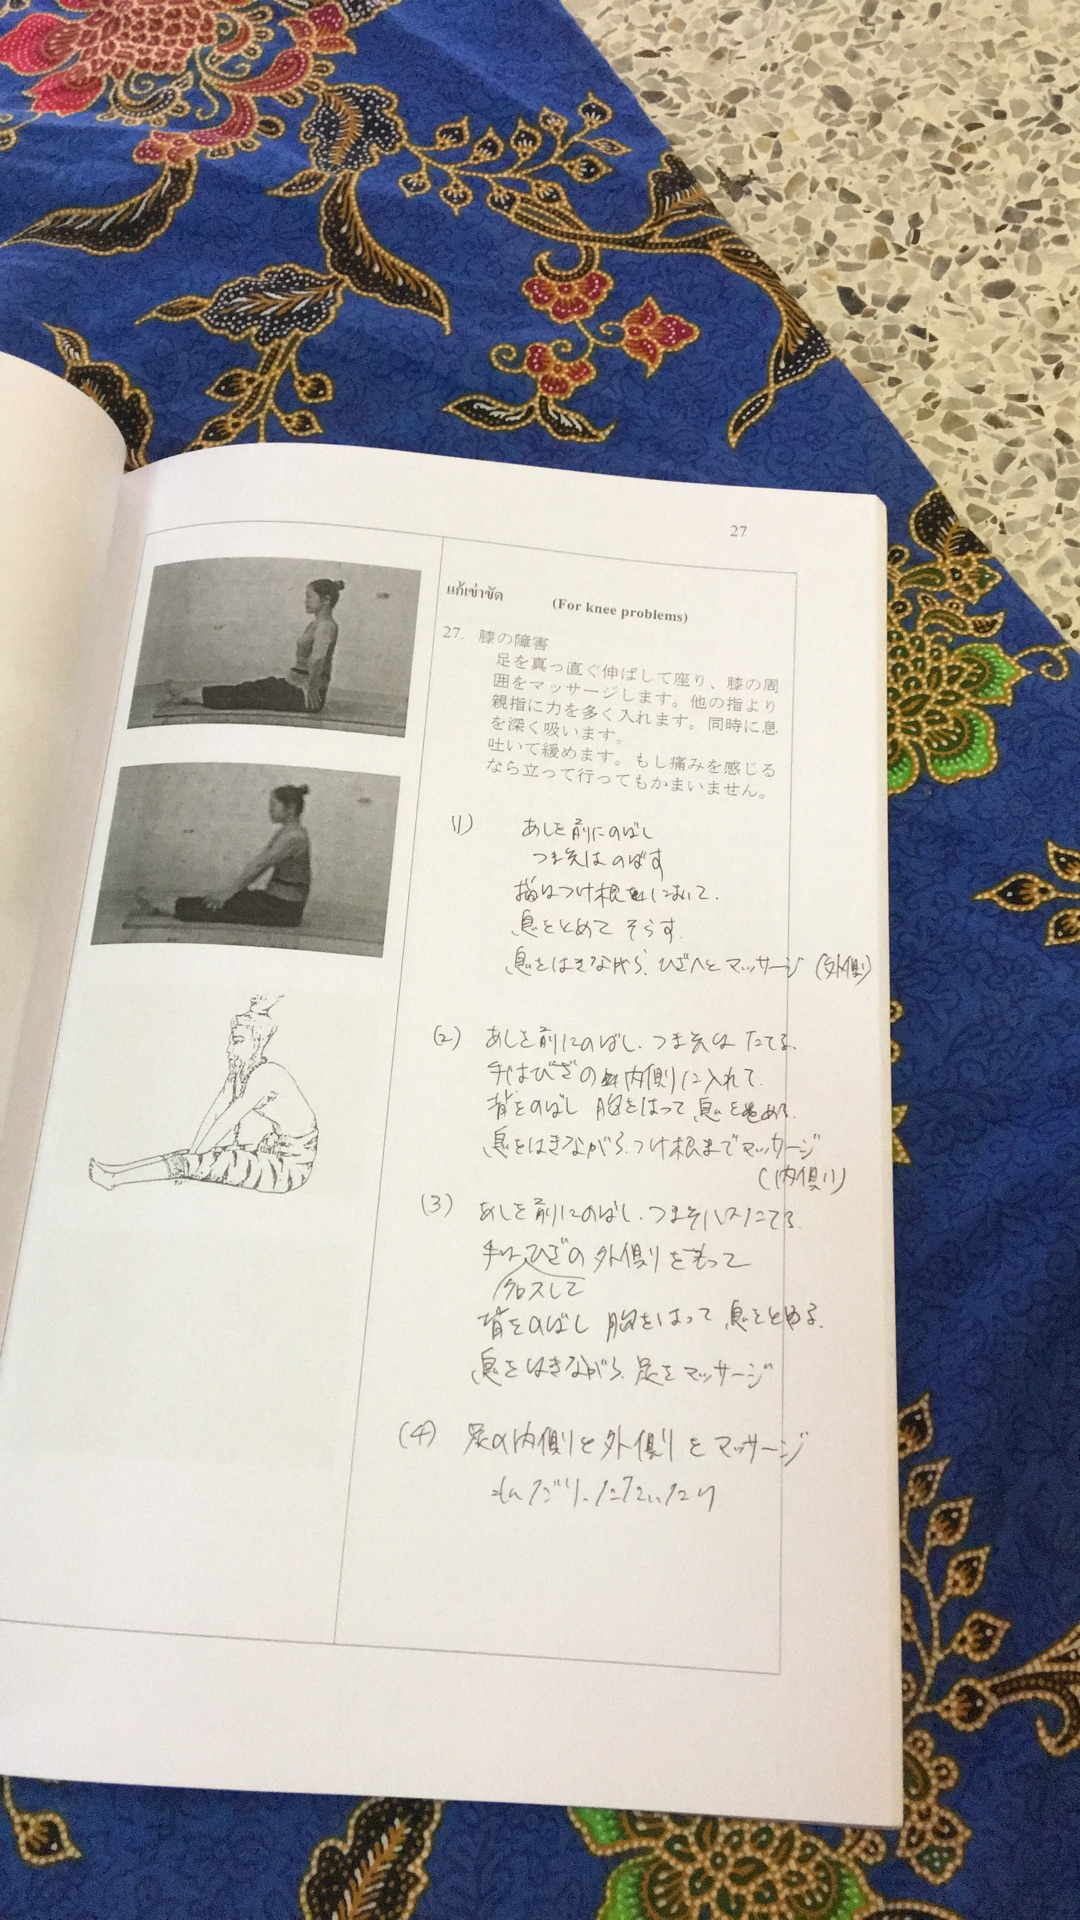 27
แก้เข่าขัด (For knee problems)
27. 膝の障害
足を真っ直ぐ伸ばして座り、膝の周
囲をマッサージします。他の指より
親指に力を多く入れます。同時に息
を深く吸います。
吐いて緩めます。もし痛みを感じる
なら立って行ってもかまいません。
(1) あしを前にのばし
つま先はのばす
指はつけ根において.
息をとめて そらす.
息をはきながら、ひざへと マッサージ (外側)
(2) あしを前にのばし、つま先は たてる.
手はひざの内側に入れて.
背をのばし 胸をはって 息を止める.
息をはきながら、つけ根までマッサージ
(内側)
(3) あしを前にのばし、つま先はたてる.
手はひざの 外側をもって
クロスして
背をのばし 胸をはって 息をとめる.
息をはきながら、足をマッサージ
(4) 足の内側と外側をマッサージ
もんだり、たたいたり